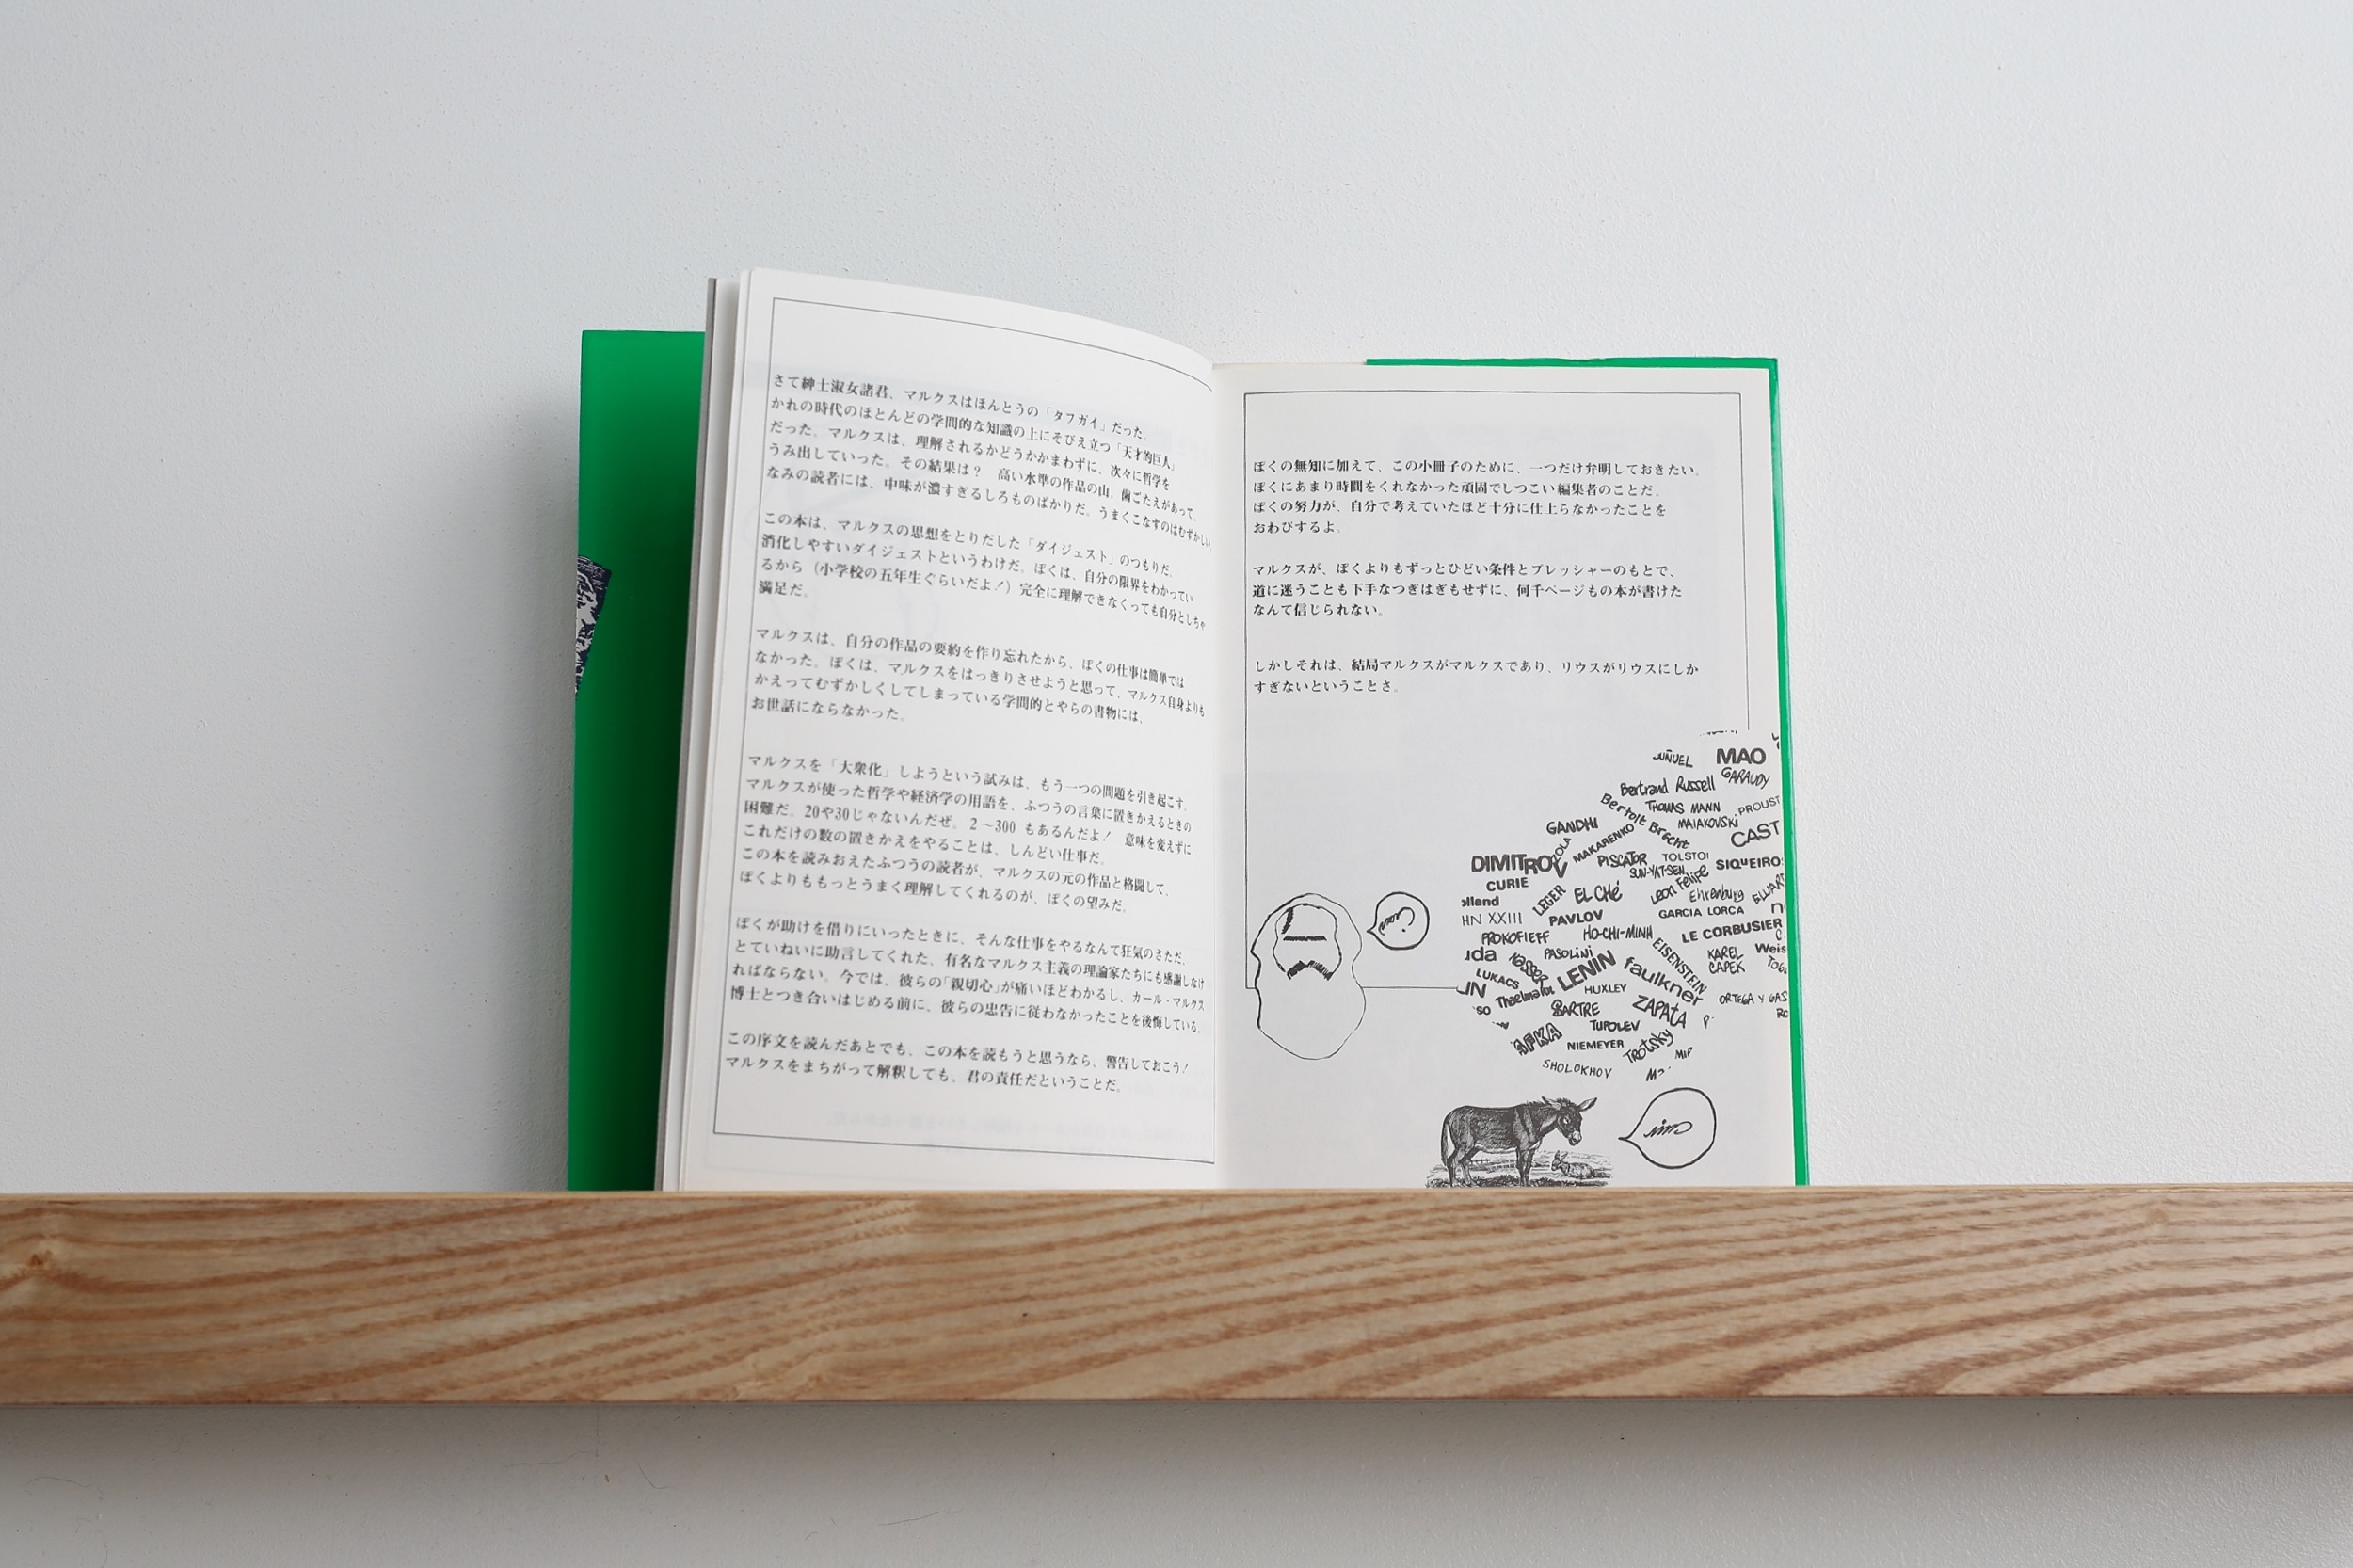 さて紳士淑女諸君、マルクスはほんとうの「タフガイ」だった。
かれの時代のほとんどの学問的な知識の上にそびえ立つ「天才的巨人」
だった。マルクスは、理解されるかどうかかまわずに、次々に哲学を
うみ出していった。その結果は？　高い水準の作品の山。歯ごたえがあって、
なみの読者には、中味が濃すぎるしろものばかりだ。うまくこなすのはむずかしい
この本は、マルクスの思想をとりだした「ダイジェスト」のつもりだ。
消化しやすいダイジェストというわけだ。ぼくは、自分の限界をわかってい
るから（小学校の五年生ぐらいだよ！）完全に理解できなくっても自分としちゃ
満足だ。
マルクスは、自分の作品の要約を作り忘れたから、ぼくの仕事は簡単では
なかった。ぼくは、マルクスをはっきりさせようと思って、マルクス自身よりも
かえってむずかしくしてしまっている学問的とやらの書物には、
お世話にならなかった。
マルクスを「大衆化」しようという試みは、もう一つの問題を引き起こす。
マルクスが使った哲学や経済学の用語を、ふつうの言葉に置きかえるときの
困難だ。20や30じゃないんだぜ。2～300 もあるんだよ！　意味を変えずに、
これだけの数の置きかえをやることは、しんどい仕事だ。
この本を読みおえたふつうの読者が、マルクスの元の作品と格闘して、
ぼくよりももっとうまく理解してくれるのが、ぼくの望みだ。
ぼくが助けを借りにいったときに、そんな仕事をやるなんて狂気のさただ、
とていねいに助言してくれた、有名なマルクス主義の理論家たちにも感謝しなけ
ればならない。今では、彼らの「親切心」が痛いほどわかるし、カール・マルクス
博士とつき合いはじめる前に、彼らの忠告に従わなかったことを後悔している。
この序文を読んだあとでも、この本を読もうと思うなら、警告しておこう！
マルクスをまちがって解釈しても、君の責任だということだ。
ぼくの無知に加えて、この小冊子のために、一つだけ弁明しておきたい。
ぼくにあまり時間をくれなかった頑固でしつこい編集者のことだ。
ぼくの努力が、自分で考えていたほど十分に仕上らなかったことを
おわびするよ。
マルクスが、ぼくよりもずっとひどい条件とプレッシャーのもとで、
道に迷うことも下手なつぎはぎもせずに、何千ページもの本が書けた
なんて信じられない。
しかしそれは、結局マルクスがマルクスであり、リウスがリウスにしか
すぎないということさ。
MAO
Bertrand Russell
GARAUDY
THOMAS MANN
PROUST
Bertolt Brecht
MAIAKOVSKI
GANDHI
CAST
ZOLA
MAKARENKO
DIMITROV
PISCATOR
TOLSTOI
SIQUEIRO
SUN-YAT-SEN
CURIE
LEGER
EL CHé
Leon Felipe
Ehrenburg
ELUAR
lland
HN XXIII
PAVLOV
GARCIA LORCA
PROKOFIEFF
HO-CHI-MINH
LE CORBUSIER
uda
Nasser
PASOLINI
EISENSTEIN
KAREL
CAPEK
Weis
LUKACS
LENIN
faulkner
HUXLEY
SARTRE
ZAPATA
ORTEGA Y GAS
TUPOLEV
NIEMEYER
TROTSKY
SHOLOKHOV